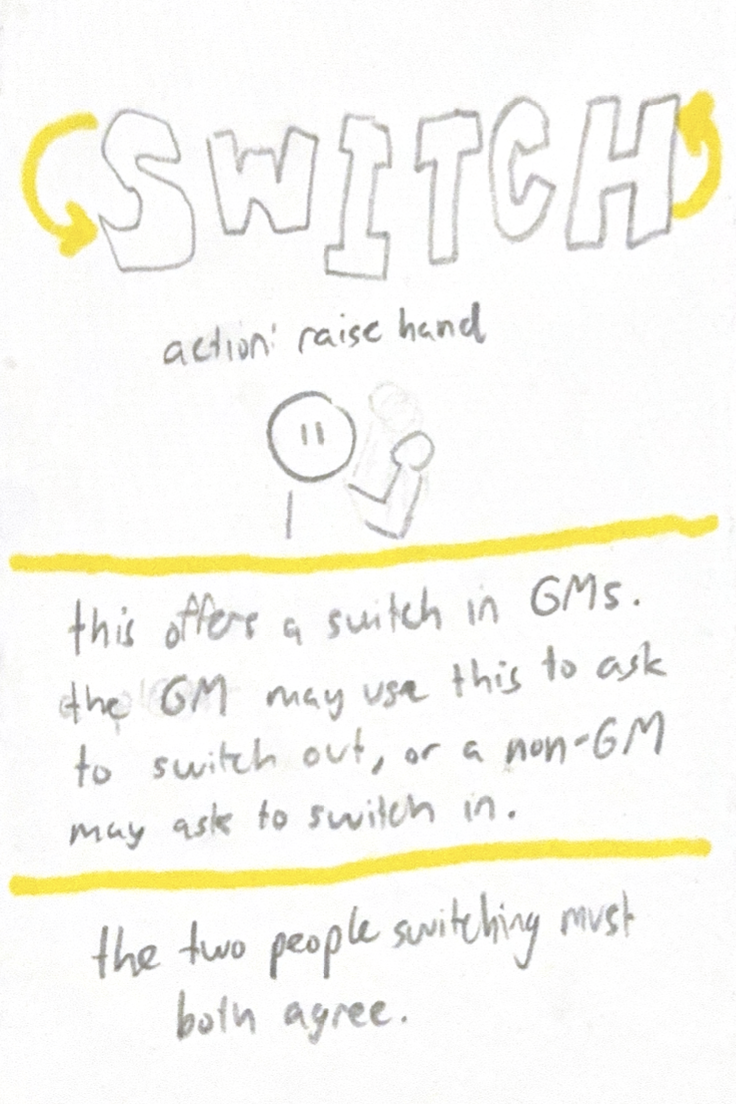 SWITCH
action: raise hand
this offers a switch in GMs.
the GM may use this to ask
to switch out, or a non-GM
may ask to switch in.
the two people switching must
both agree.